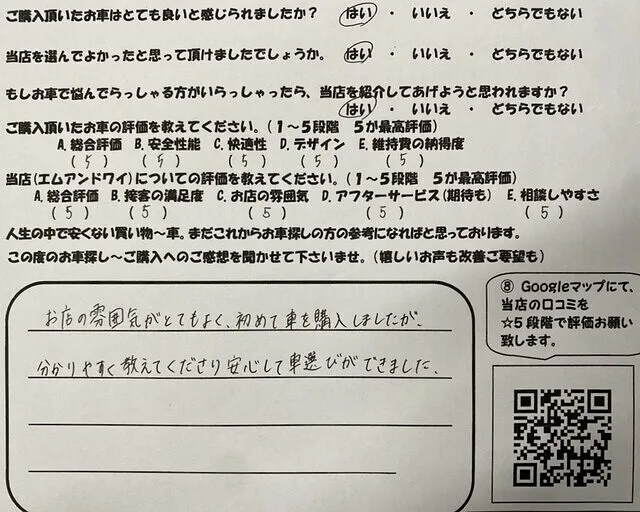 ご購入頂いたお車はとても良いと感じられましたか？　はい ・ いいえ ・ どちらでもない
当店を選んでよかったと思って頂けましたでしょうか。 はい ・ いいえ ・ どちらでもない
もしお車で悩んでらっしゃる方がいらっしゃったら、当店を紹介してあげようと思われますか？
はい ・ いいえ ・ どちらでもない
ご購入頂いたお車の評価を教えてください。(１～５段階　５が最高評価)
A. 総合評価 B. 安全性能 C. 快適性 D. デザイン E. 維持費の納得度
(5) (5) (5) (5) (5)
当店(エムアンドワイ)についての評価を教えてください。(１～５段階　５が最高評価)
A. 総合評価 B. 接客の満足度 C. お店の雰囲気 D. アフターサービス(期待も) E. 相談しやすさ
(5) (5) (5) (5) (5)
人生の中で安くない買い物～車。まだこれからお車探しの方の参考になればと思っております。
この度のお車探し～ご購入へのご感想を聞かせて下さいませ。(嬉しいお声も改善ご要望も)
お店の雰囲気がとてもよく、初めて車を購入しましたが、
分かりやすく教えてくださり安心して車選びができました。
⑧ Googleマップにて、
当店の口コミを
☆５段階で評価お願い
致します。